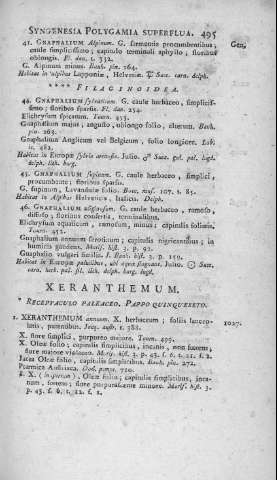 SYNGENESIA POLYGAMIA SUPERFLUA. 495
41. GNAPHALIUM Alpinum. G. sarmentis procumbentibus,
caule simplicissimo; capitulo terminali aphyllo, floribus
oblongis. Fl. dan. t. 332.
G. Alpinum minus. Bauh. pin. 264.
Habitat in alpibus Lapponiæ, Helvetiæ.
Gen.
**** FILAGINOIDEA.
44. GNAPHALIUM sylvaticum. G. caule herbaceo, simplicissi-
mo; floribus sparsis. Fl. dan.
Elichrysum spicatum. Tourn. 453.
Gnaphalium majus, angusto, oblongo folio, alterum. Bauh.
pin. 263.
Gnaphalium Anglicum vel Belgicum, folio longiore. Lob.
ic. 482.
Habitat in Europæ sylvis arenosis. Julio.
delph. lith. burg.
45. GNAPHALIUM supinum. G. caule herbaceo, simplici,
procumbente; floribus sparsis.
G. supinum, Lavandulæ folio. Bocc. mus. 107. t. 85.
Habitat in Alpibus Helveticis, Italicis. Delph.
46. GNAPHALIUM uliginosum. G. caule herbaceo, ramoso,
diffuso; floribus confertis, terminalibus.
Elichrysum aquaticum, ramosum, minus; capitulis foliatis.
Tourn. 452.
Gnaphalium annuum serotinum; capitulis nigricantibus; in
humidis gaudens. Moris. hist. 3. p. 92.
Gnaphalio vulgari similis. J. Bauh. hist. 3. p. 159.
Habitat in Europæ paludibus, ubi aquæ stagnant. Julio. ☉ Sax.
cara. herb. pal. sil. lith. delph. burg. lugd.
XERANTHEMUM.
* RECEPTACULO PALEACEO. PAPPO QUINQUESETO.
1. XERANTHEMUM annuum. X. herbaceum; foliis lanceo-
latis, patentibus. Jacq. aust. t. 388.
1027.
X. flore simplici, purpureo majore. Tourn. 499.
X. Oleæ folio, capitulis simplicibus, incanis, non fœtens,
flore majore violaceo. Moris. hist. 3. p. 43. s. 6. t. 12. f. 2.
Jacea Oleæ folio, capitulis simplicibus. Bauh. pin. 272.
Ptarmica Austriaca. Dod. pempt. 710.
β. X. (inapertum), Oleæ folio; capitulis simplicibus, inca-
num, fœtens; flore purpurascente minore. Moris. hist. 3.
p. 43. s. 6. t. 12. f. 1.